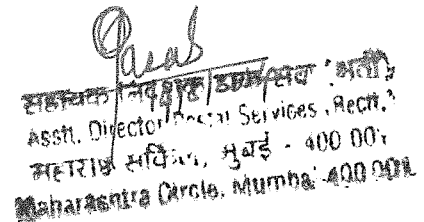 सहायक निदेशक डाक सेवा (भर्ती)
Asstt. Director Postal Services, Rectt.,
महाराष्ट्र सर्किल, मुंबई - 400 001
Maharashtra Circle, Mumbai-400 001.